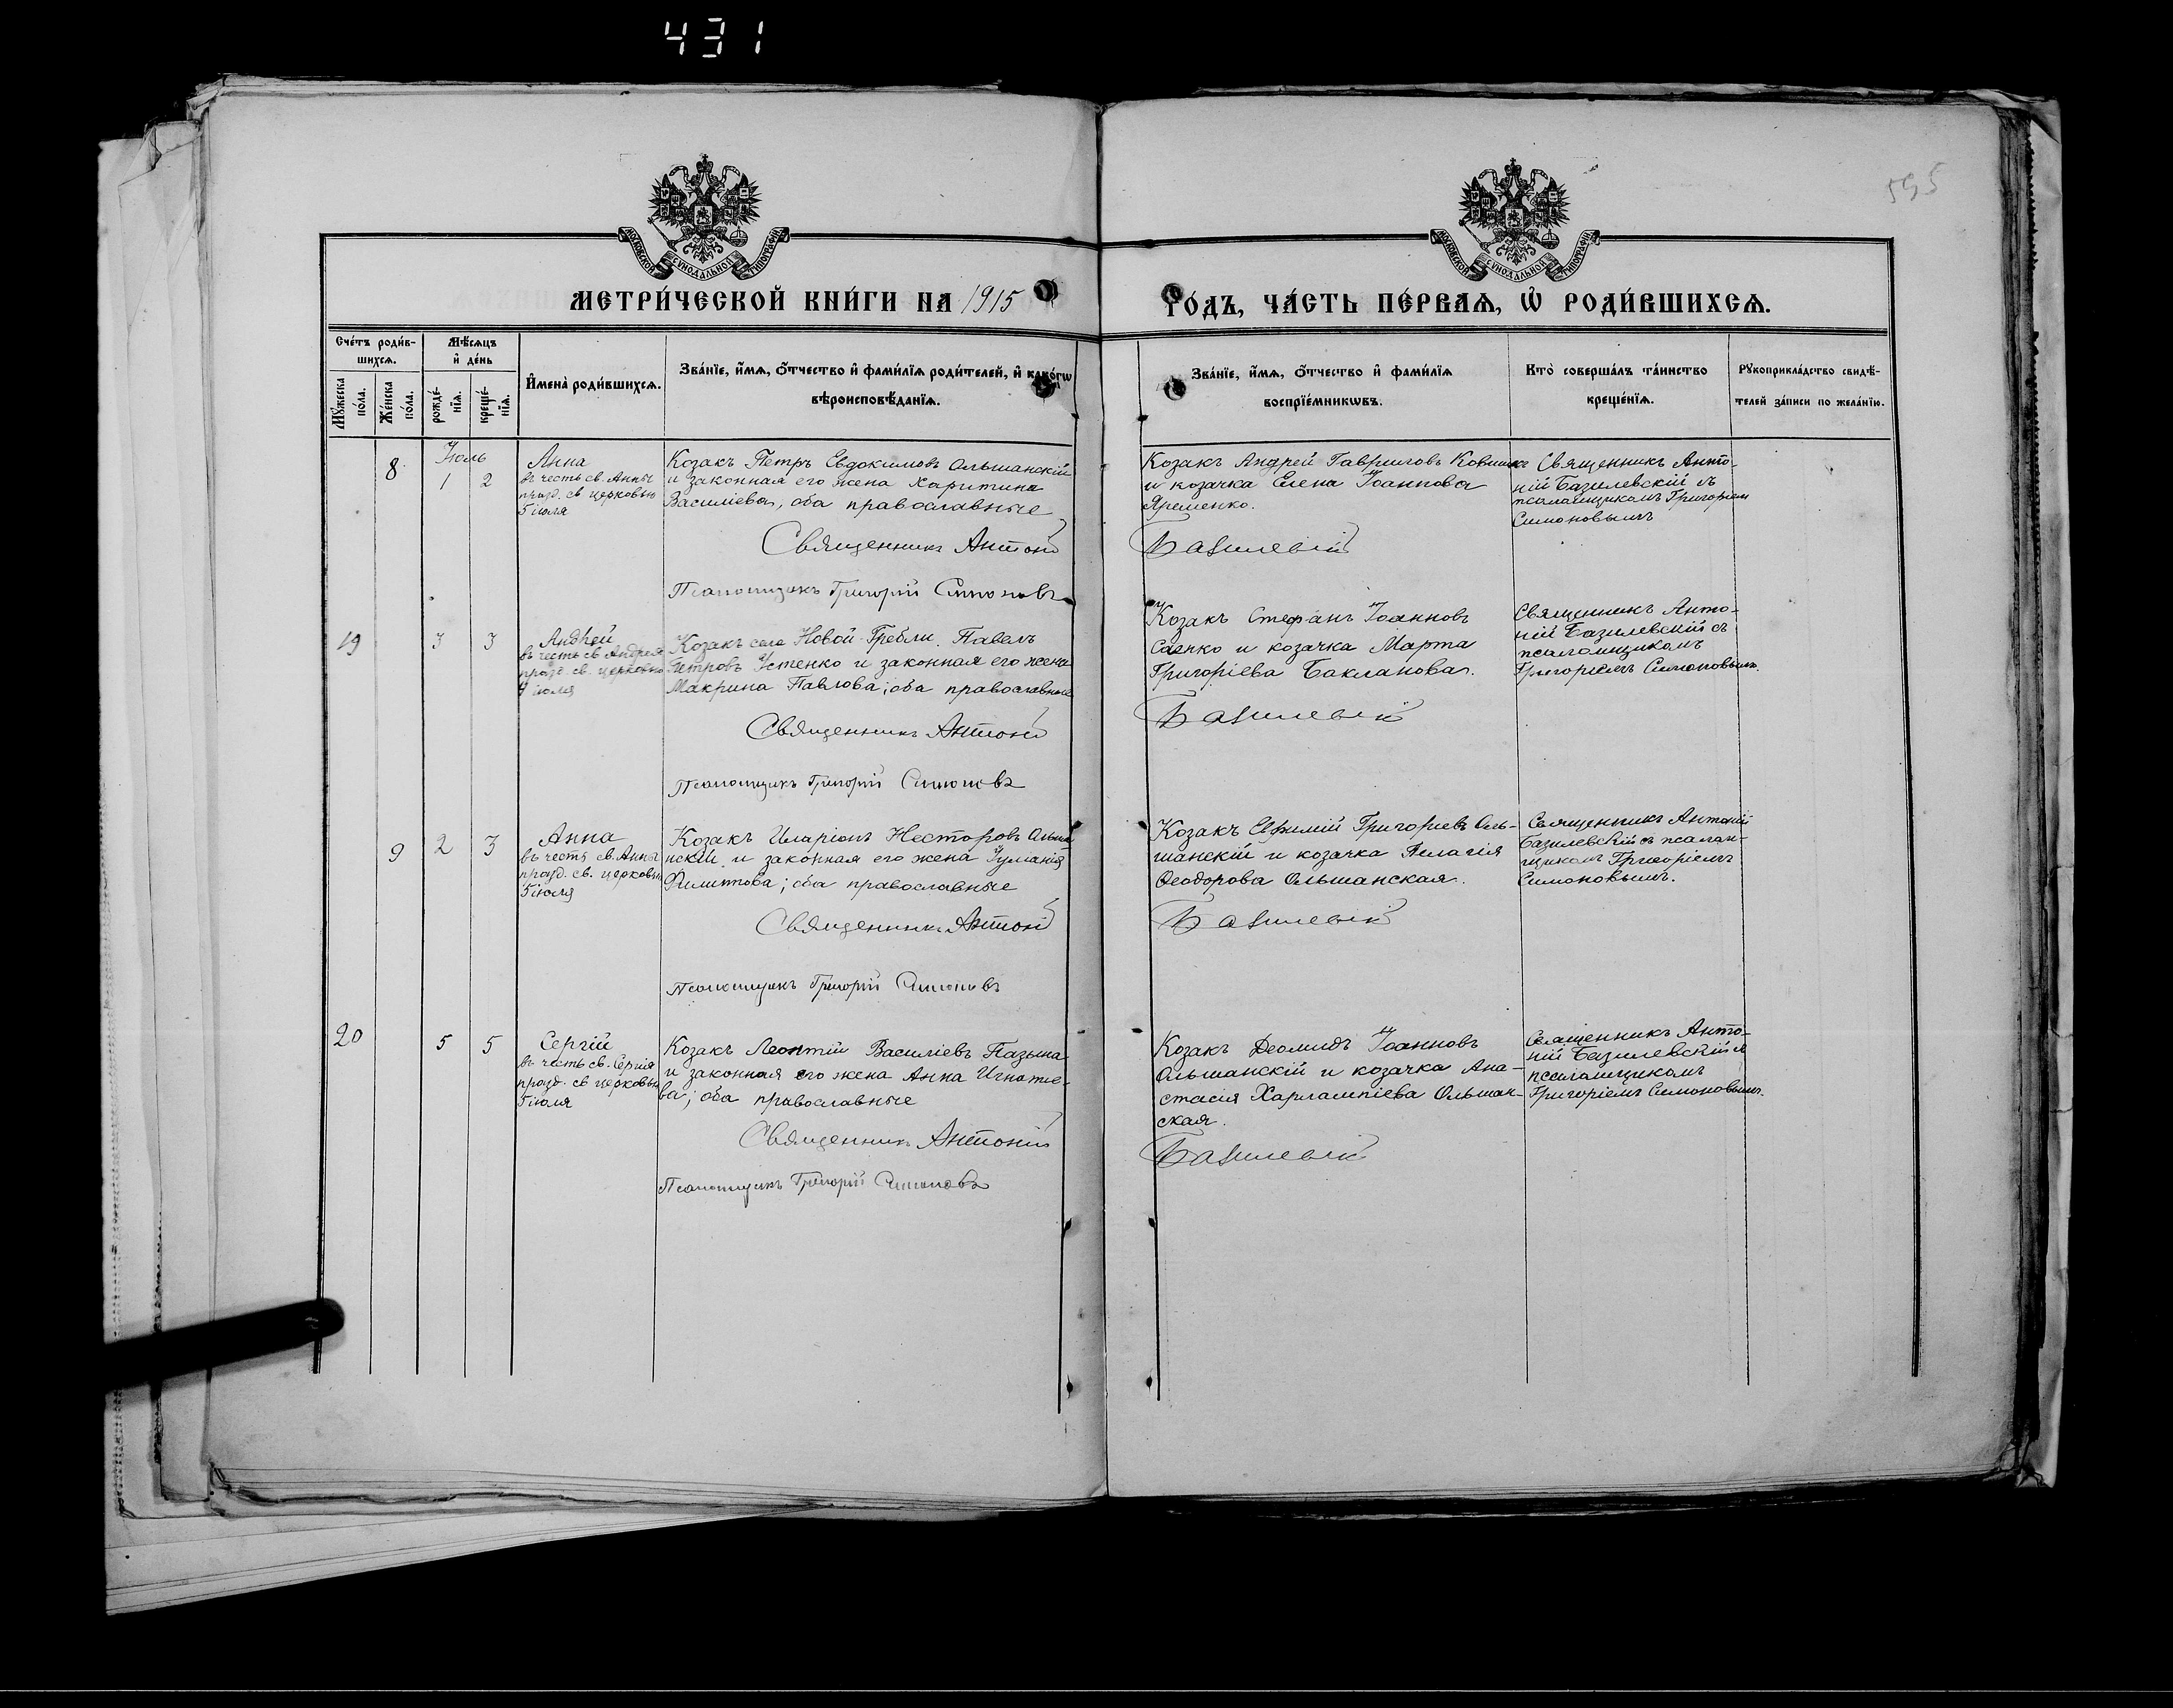 431
595
МОСКОВСКОЙ СУНОДАЛЬНОЙ ТИПОГРАФІИ
МОСКОВСКОЙ СУНОДАЛЬНОЙ ТИПОГРАФІИ
МЕТРИ́ЧЕСКОЙ КНИ́ГИ НА 1915 ГО́ДЪ, ЧА́СТЬ ПЕ́РВАЯ, Ѡ҆ РОДИ́ВШИХСЯ.
Сче́тъ роди́в-
шихся.
Мꙋ́жеска по́ла.
Же́нска по́ла.
Мѣ́сяцъ
и҆ де́нь
рожде́нїя.
креще́нїя.
И҆мена̀ роди́вшихся.
Зва́нїе, и҆́мя, ѻ҆́тчество и҆ фами́лїя роди́телей, и҆ како́гѡ
вѣроисповѣ́данїя.
Зва́нїе, и҆́мя, ѻ҆́тчество и҆ фами́лїя
воспрїе́мникѡвъ.
Кто̀ соверша́лъ та́инство
креще́нїя.
Рꙋкоприкла́дство свидѣ́-
телей за́писи по жела́нїю.
8
Іюль
1 2
Анна
въ честь св. Анны
празд. св церковью
5 іюля
Козакъ Петръ Евдокимовъ Ольшанскій
и законная его жена Харитина
Василіева, оба православные
Священникъ Антоній
Псаломщикъ Григорій Симоновъ
Козакъ Андрей Гавриловъ
и козачка Елена Іоаннова
Яременко.
Базилевскій
Священникъ Анто-
ній Базилевскій съ
псаломщикомъ Григоріем
Симоновымъ
19
3 3
Андрей
въ честь св Андрея
празд. св. церковью
4 іюля
Козакъ села Новой-Гребли Павелъ
Петровъ Устенко и законная его жена
Макрина Павлова; оба православные
Священникъ Антоній
Псаломщикъ Григорій Симоновъ
Козакъ Стефанъ Іоанновъ
Саенко и козачка Марта
Григоріева Бакланова.
Базилевскій
Священникъ Анто-
ній Базилевскій съ
псаломщикомъ
Григоріемъ Симоновымъ.
9
2 3
Анна
въ честь св. Анны
празд. св. церковью
5 іюля
Козакъ Иларіонъ Несторовъ Ольша
нскій и законная его жена Іуліанія
Филиппова; оба православные
Священникъ Антоній
Псаломщикъ Григорій Симоновъ
Козакъ Евфимій Григориевъ Оль-
шанскій и козачка Пелагія
Ѳеодорова Ольшанская.
Базилевскій
Священникъ Антоній
Базилевскій съ псалом-
щикомъ Григоріемъ
Симоновымъ.
20
5 5
Сергій
въ честь св. Сергія
празд. св церковью
5 іюля
Козакъ Леонтій Василіевъ
и законная его жена Анна Игнатіе-
ва; оба православные
Священникъ Антоній
Псаломщикъ Григорій Симоновъ
Козакъ Деомидъ Іоанновъ
Ольшанскій и козачка Ана-
стасія Харлампіева Ольшан-
ская.
Базилевскій
Священникъ Анто-
ній Базилевскій съ
псаломщикомъ
Григоріемъ Симоновымъ.